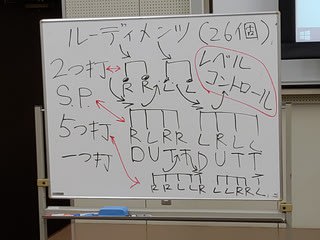 ルーディメンツ(26個)
2つ打
R R L L
レベル
コントロール
S.P.
R L R R L R L L
5つ打
D U T T D U T T
一つ打
R R L L R L L R R L